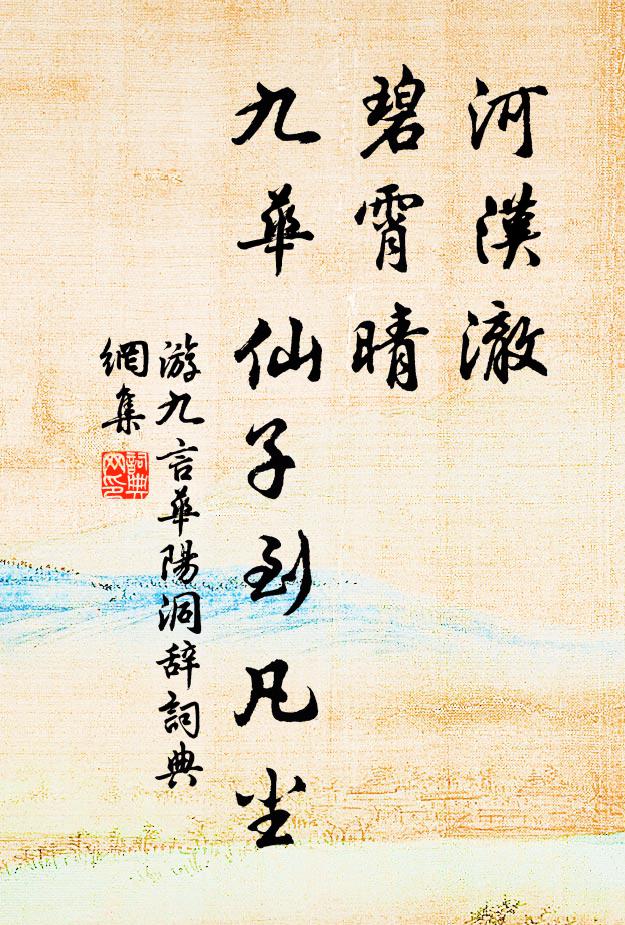 河漢澈
碧霄晴
九華仙子到凡尘
游九言華陽洞辞詞典
網集
詞典
网印